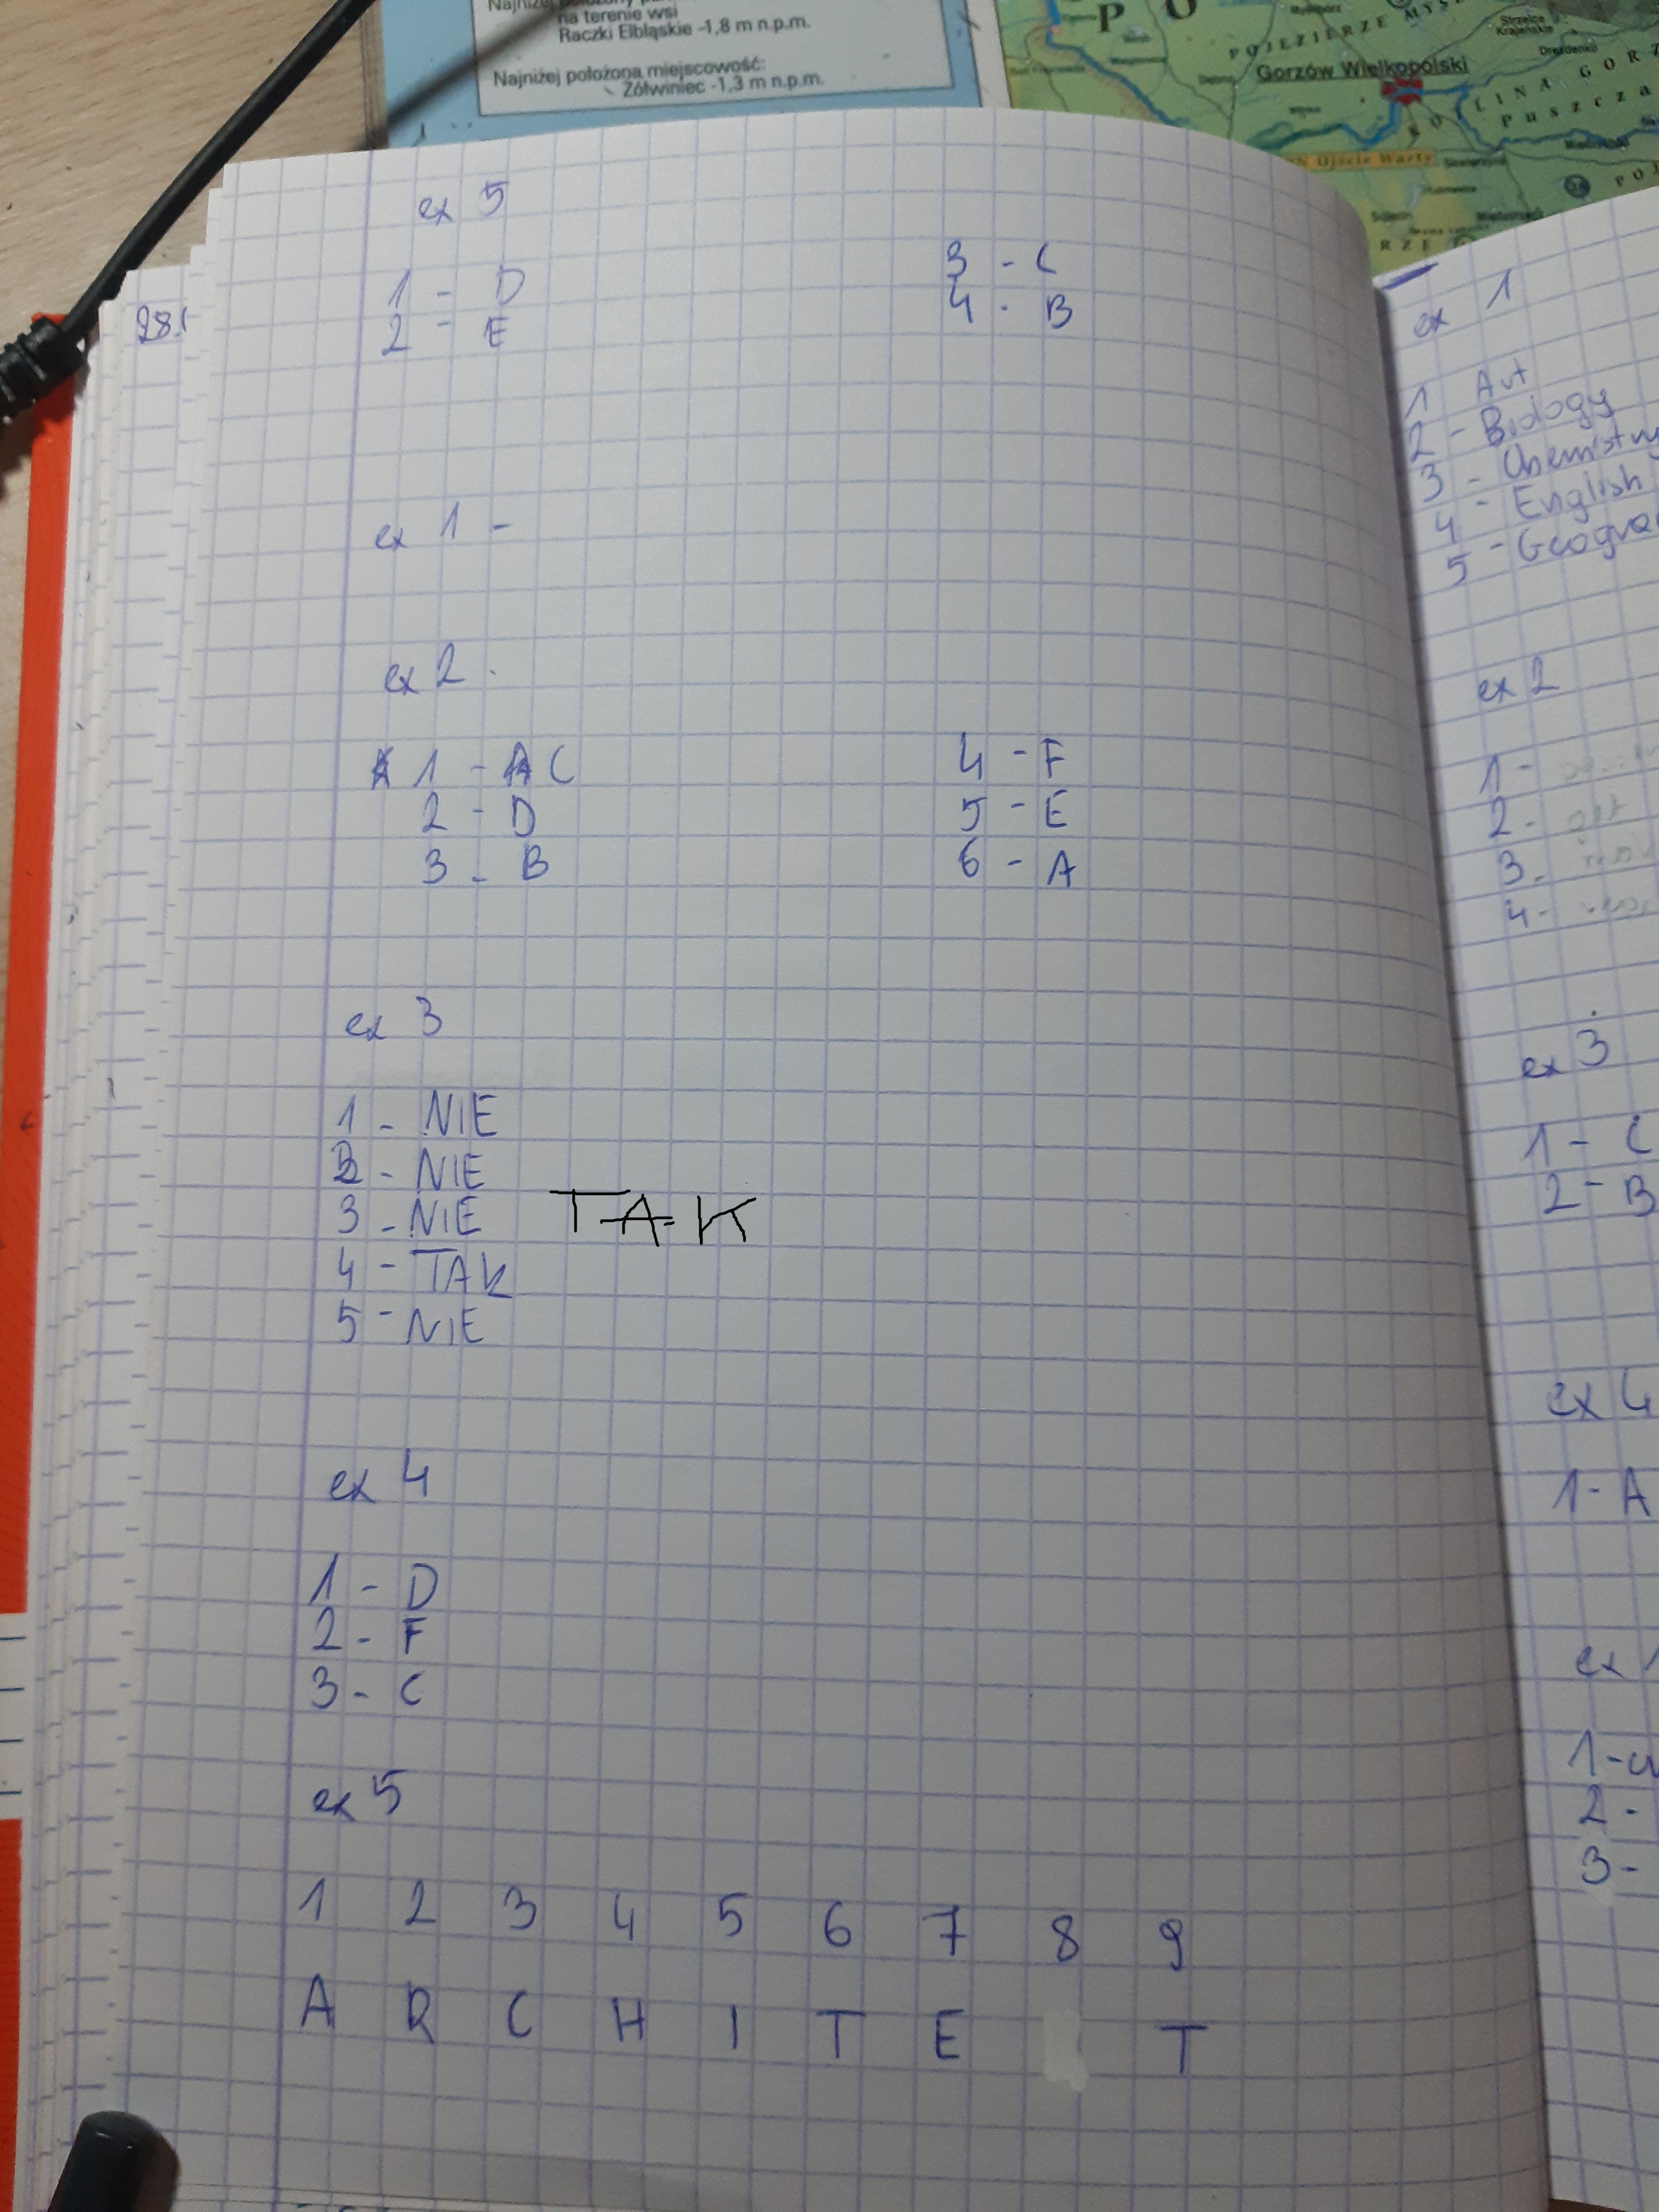 na terenie wsi
Raczki Elbląskie -1,8 m n.p.m.
Najniżej położona miejscowość:
Żółwiniec -1,3 m n.p.m.
P O
POJEZIERZE
Gorzów Wielkopolski
Strzelce
Krajeńskie
Drezdenko
Puszcza
Ujście Warty
ex 5
1 - D
2 - E
3 - C
4 - B
ex 1 -
ex 2
1 - C
2 - D
3 - B
4 - F
5 - E
6 - A
ex 3
1 - NIE
2 - NIE
3 - NIE TAK
4 - TAK
5 - NIE
ex 4
1 - D
2 - F
3 - C
ex 5
1 2 3 4 5 6 7 8 9
A R C H I T E T
ex 1
1 Art
2 - Biology
3 - Chemistry
4 - English
5 -
ex 2
1 -
2 - get
3 -
4 -
ex 3
1 - C
2 - B
ex 4
1 - A
ex 1
1 -
2 -
3 -